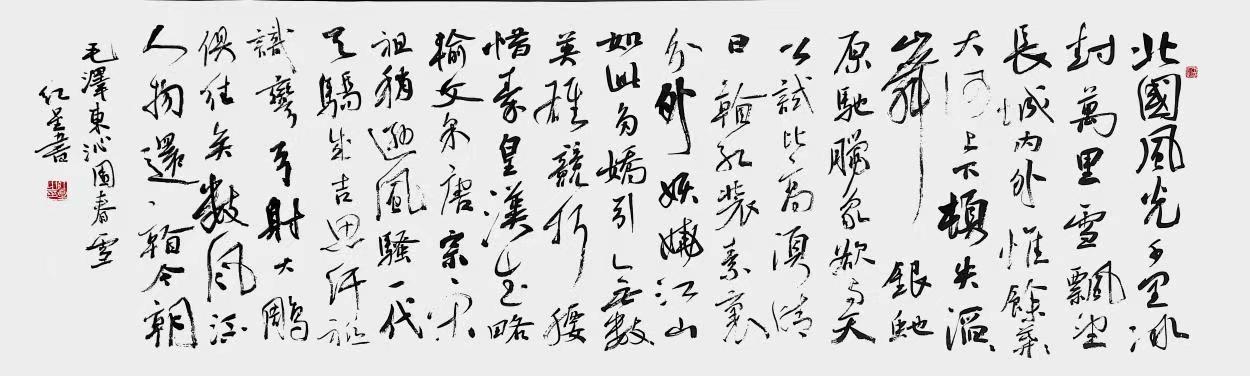 北國風光千里冰
封萬里雪飄望
長城内外惟餘莽〻
大河上下頓失滔〻
山舞銀蛇
原馳臘象欲与天
公試比高須晴
日看紅裝素裹
分外妖嬈江山
如此多嬌引無數
英雄競折腰
惜秦皇漢武略
輸文采唐宗宋
祖稍遜風騷一代
天驕成吉思汗祗
識彎弓射大鵰
俱往矣數風流
人物還看今朝
毛澤東沁園春雪
書